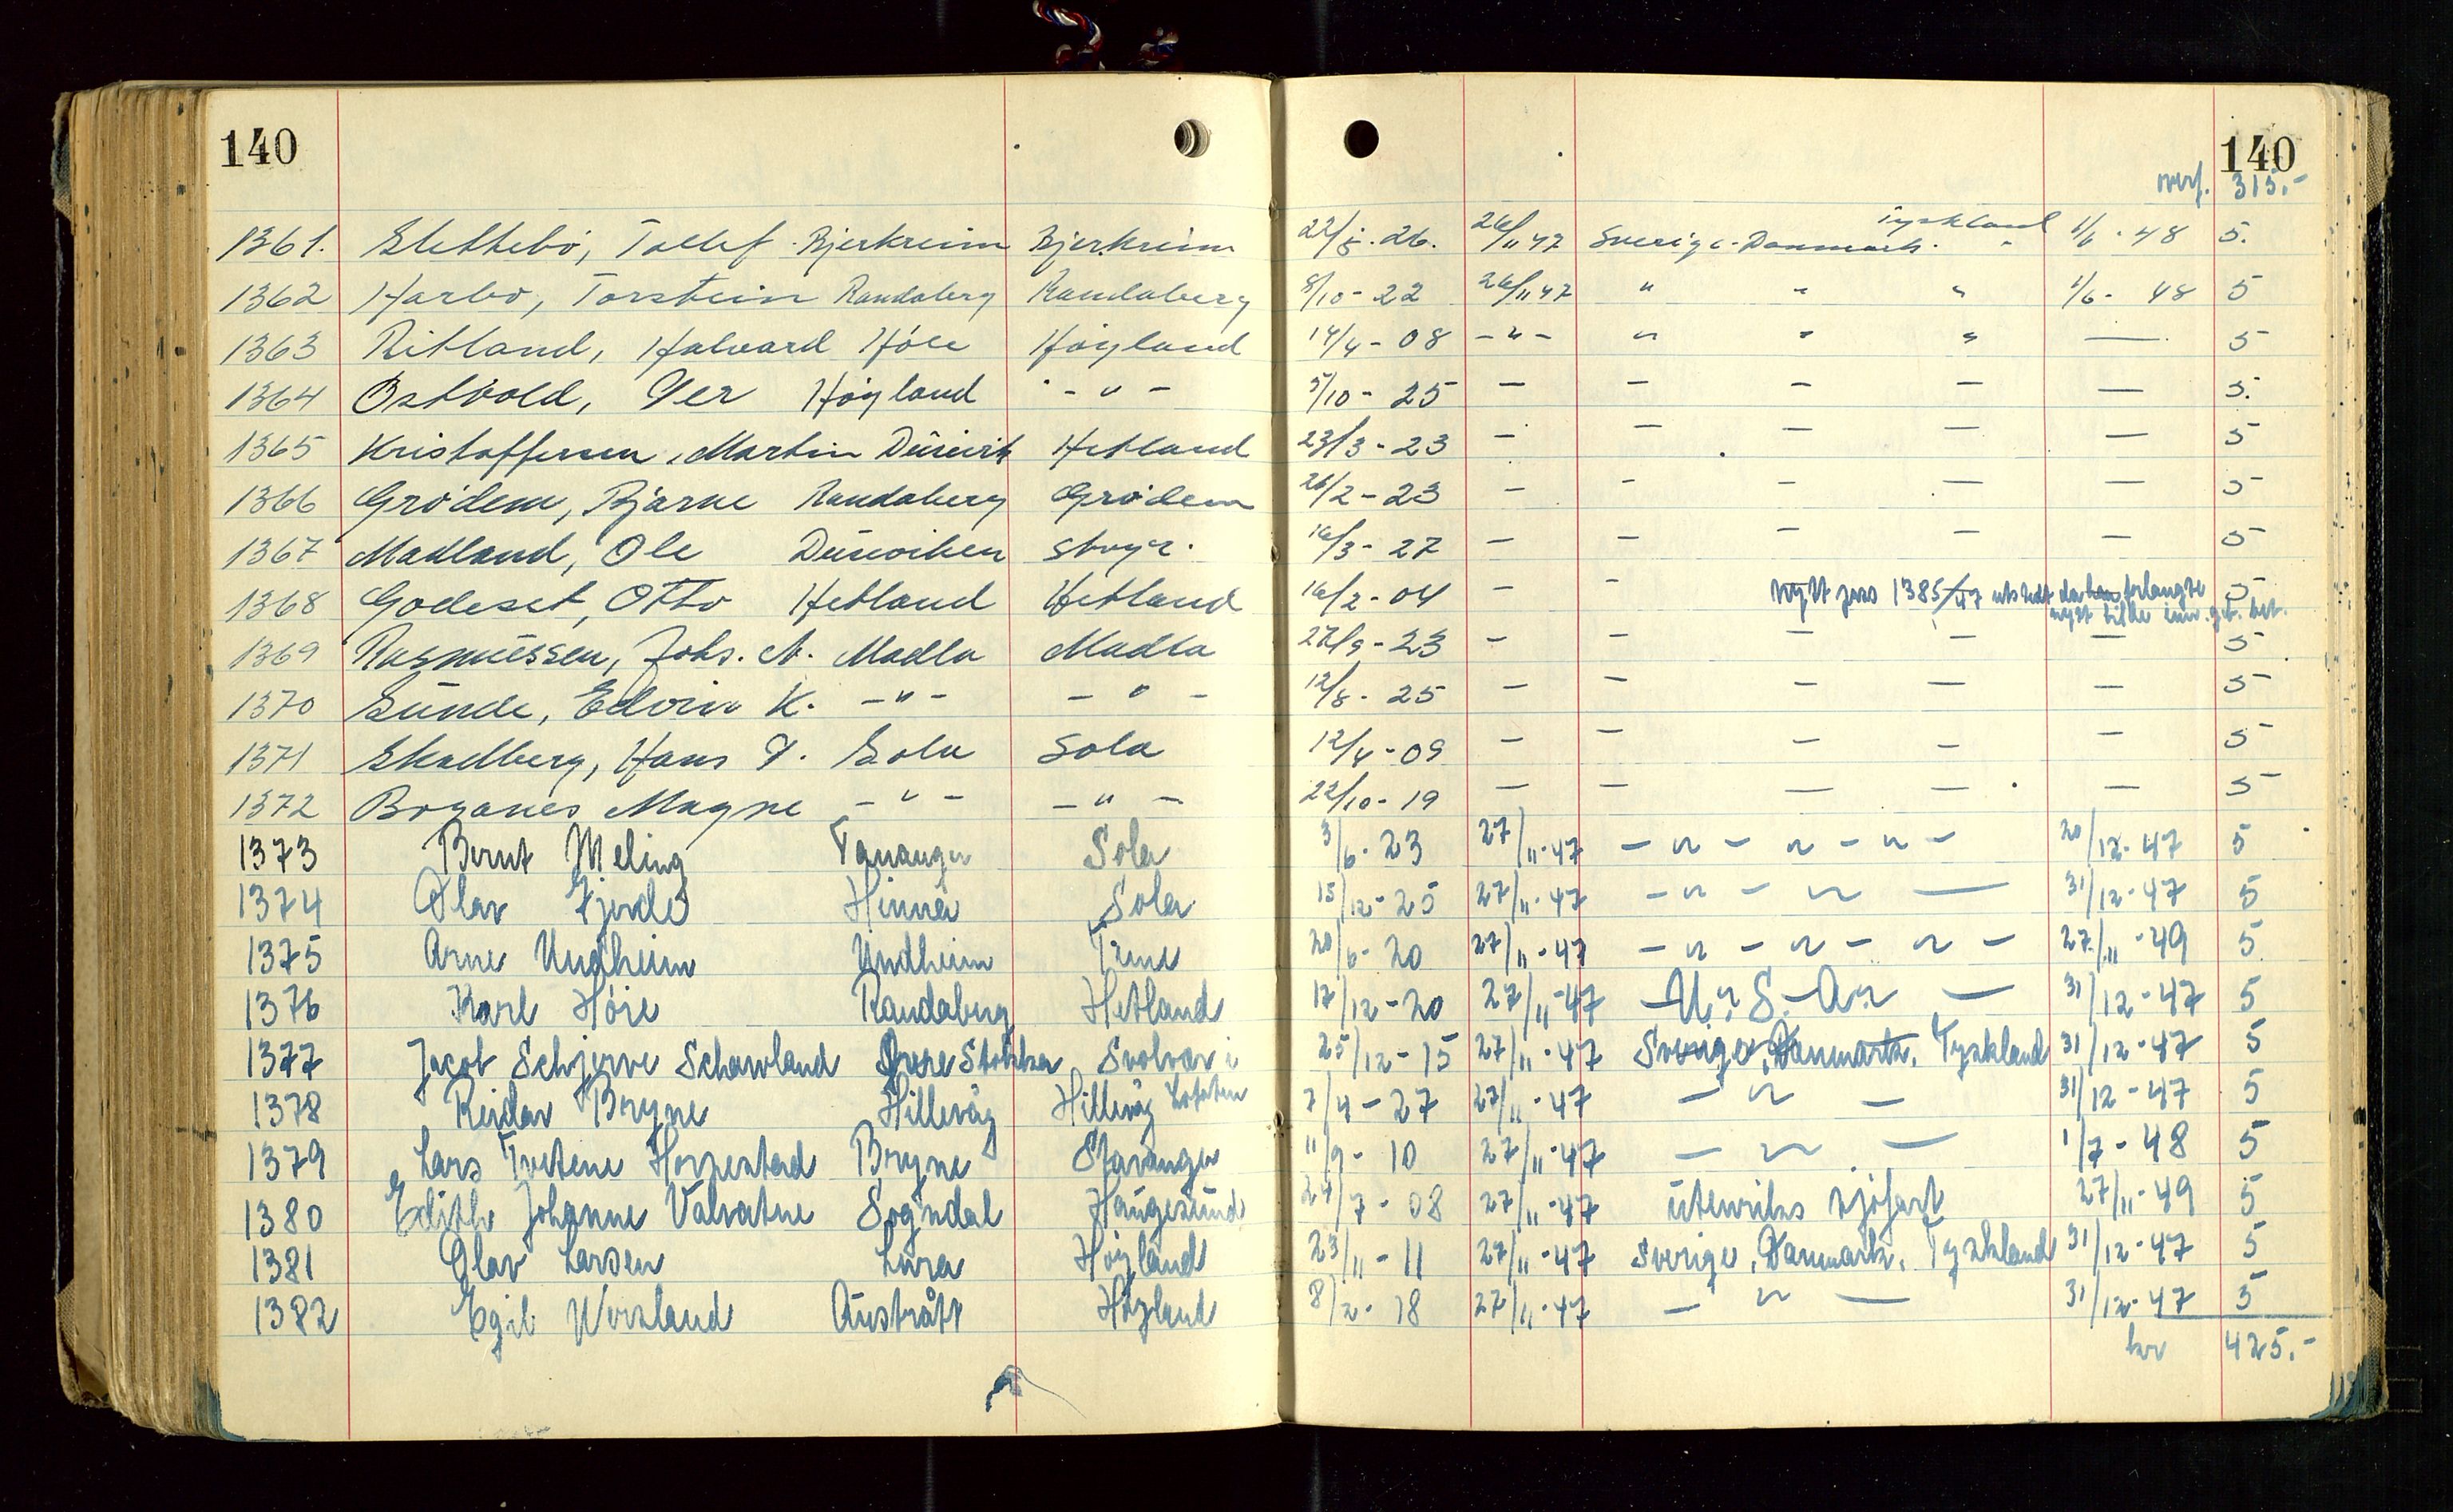 140 140
overf. 315.-
1361. Slettebö, Tollef Bjerkreim Bjerkreim 22/5-26. 26/11 47 Sverige-Danmark. Tyskland 1/6-48 5.
1362 Harbo, Torstein Randaberg Randaberg 8/10-22 26/11 47 " " " 1/6-48 5
1363 Ritland, Halvard Höle Høyland 14/4-08 -"- " " " — 5
1364 Östvold, Per Høyland -"- 5/10-25 — — — — — 5.
1365 Kristoffersen, Martin Hetland 23/3-23 — — — — — 5
1366 Grödem, Bjarne Randaberg Grödem 26/2-23 — — — — — 5
1367 Madland, Ole Duseviken 16/3-27 — — — — — 5
1368 Godeset, Otto Hetland Hetland 16/2-04 — — nytt pass 1385/47 utstedt da han forlangte 5
nytt bilde
1369 Rasmussen, Johs. A. Madla Madla 27/9-23 — — — — — 5
1370 Sunde, Edvin K. -"- -"- 12/8-25 — — — — — 5
1371 Skadberg, Hans P. Sola Sola 12/4-09 — — — — — 5
1372 Boganes Magne -"- -"- 22/10-19 — — — — — 5
1373 Bernt Meling Tananger Sola 3/6-23 27/11-47 -"-"-"- 20/12-47 5
1374 Olav Gjerde Hinna Sola 15/12-25 27/11-47 -"-" — 31/12-47 5
1375 Arne Undheim Undheim Time 20/6-20 27/11-47 -"-"-"- 27/11-49 5
1376 Karl Höie Randaberg Hetland 17/12-20 27/11-47 U.S.A. — 31/12-47 5
1377 Jacob Schjerve Schanland Øvre Stokka Svolvær i 25/12-15 27/11-47 Sverige, Danmark, Tyskland 31/12-47 5
Lofoten
1378 Reidar Bryne Hillevåg Hillevåg 7/4-27 27/11-47 — " — 31/12-47 5
1379 Lars Tvetene Horpestad Bryne Stavanger 11/9-10 27/11-47 — " — 1/7-48 5
1380 Edith Johanne Valvatne Sogndal Haugesund 27/7-08 27/11-47 utenriks sjöfart 27/11-49 5
1381 Olav Larsen Lura Høyland 23/11-11 27/11-47 Sverige, Danmark, Tyskland 31/12-47 5
1382 Egil Versland Austrått Høyland 8/2-18 27/11-47 — " — 31/12-47 5
kr 425.-